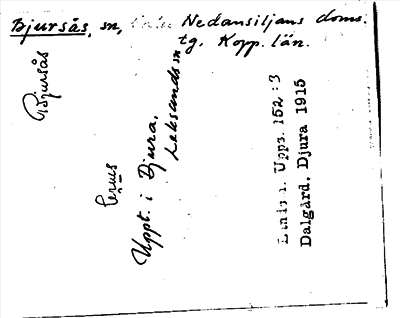 Bjursås, sn, Nedansiljans doms.
tg. Kopp. län.
Bjursås
Uppt. i Djura,
Leksands sn
Upps. 152:3
Dalgård, Djura 1915